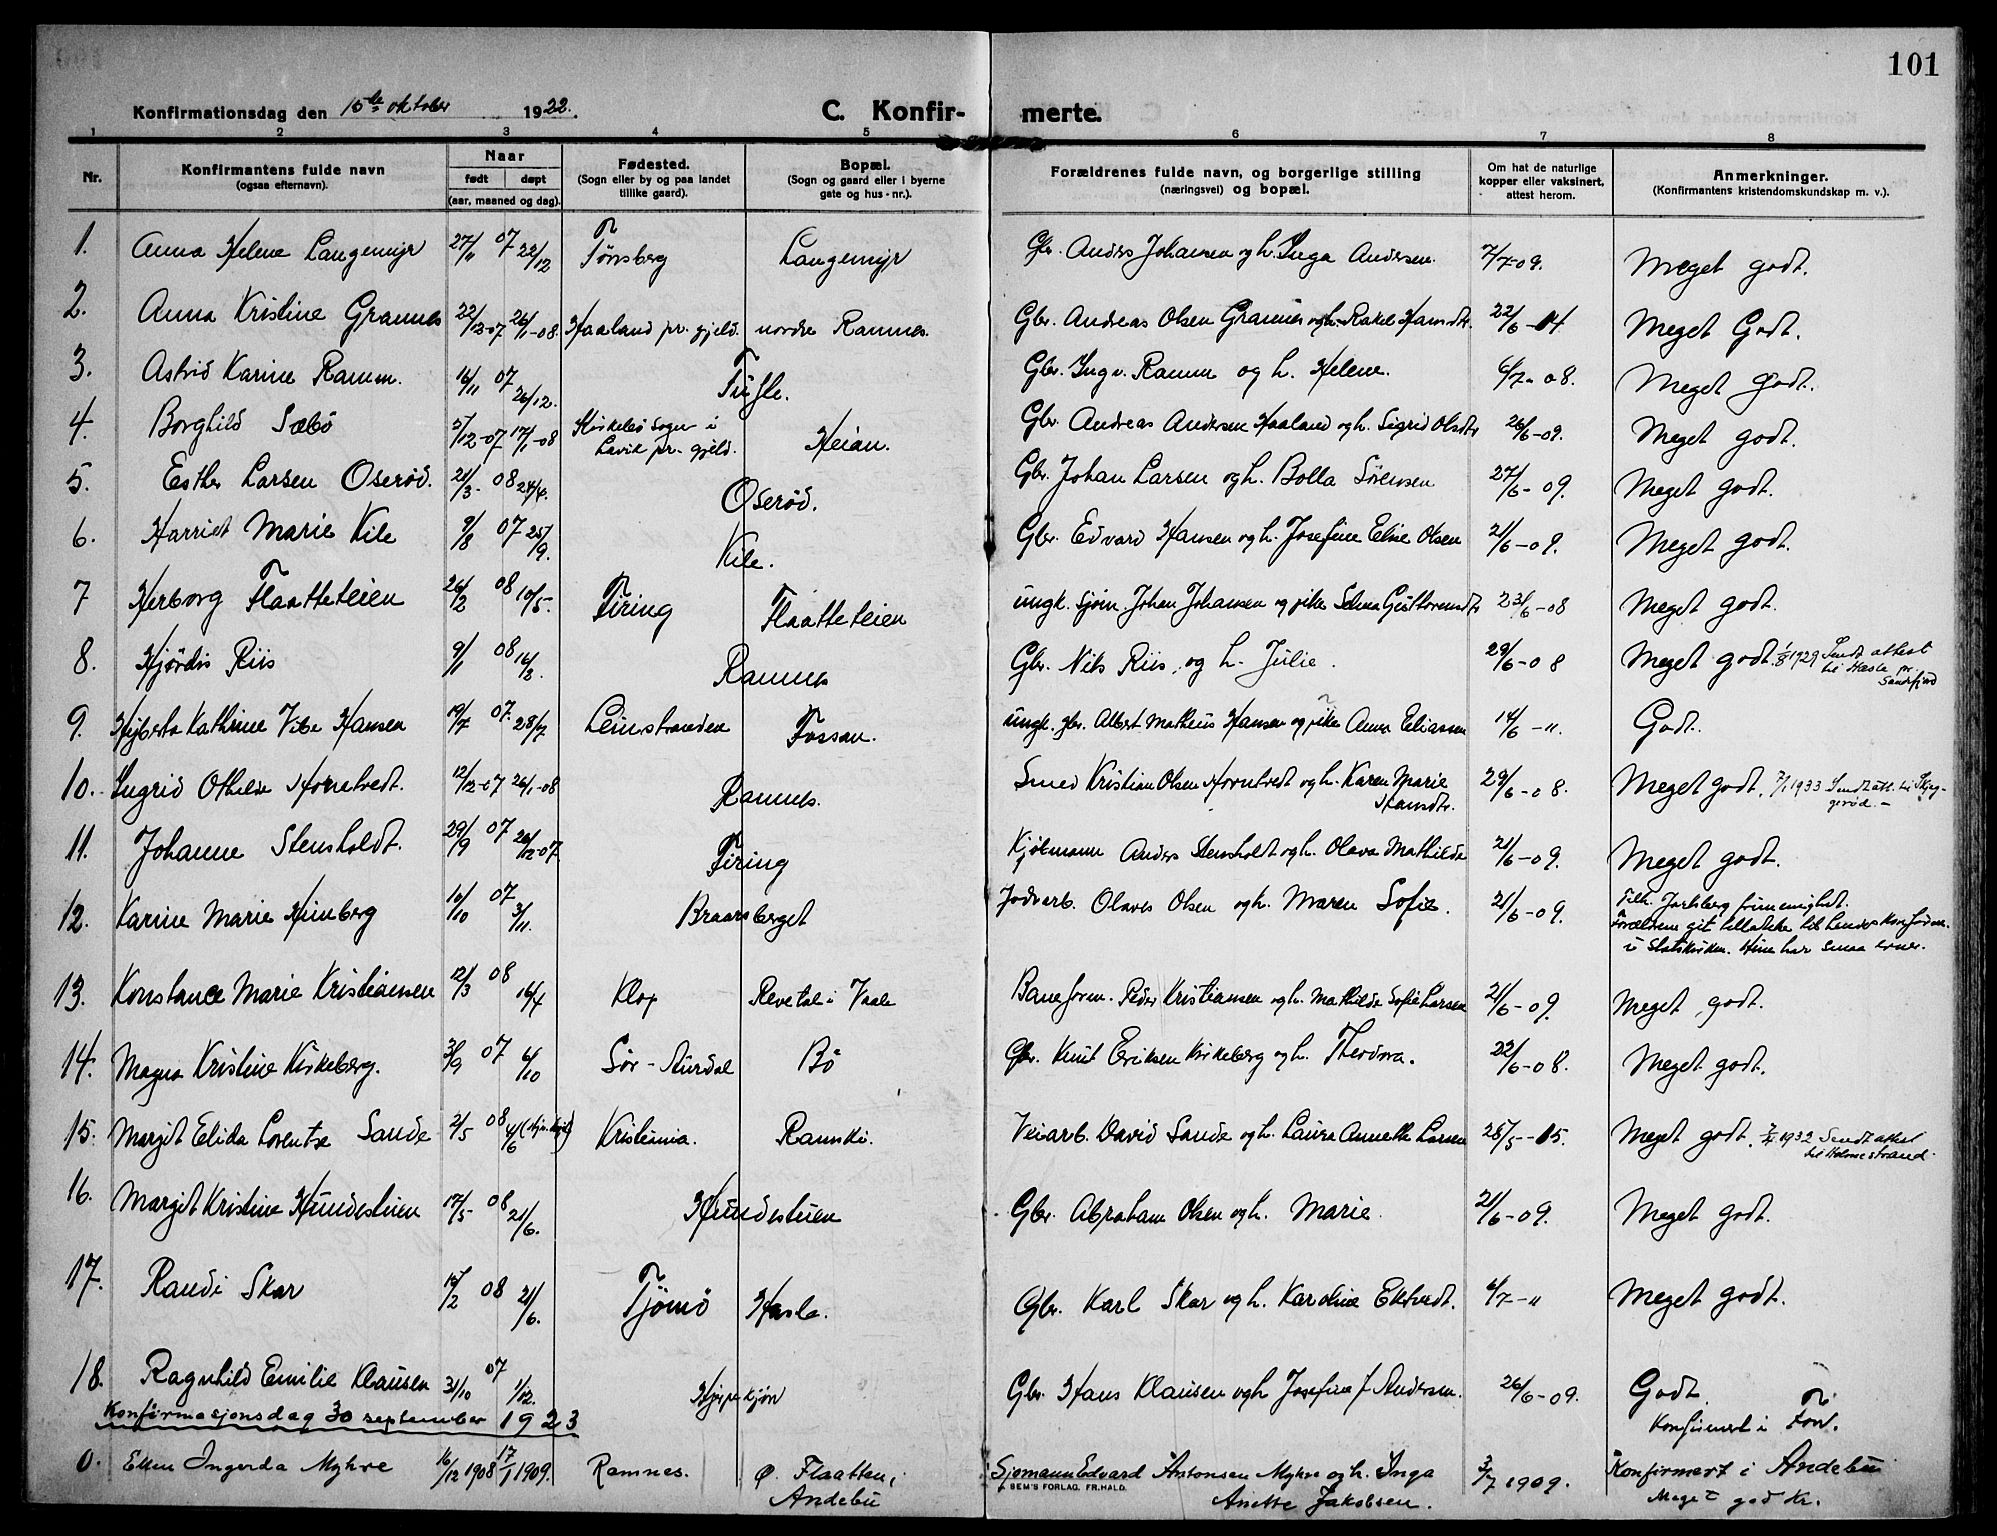 101
Konfirmationsdag den 15de oktober 1922.
C. Konfir- merte.
1 2 3 4 5 6 7 8
Nr.
Konfirmantens fulde navn
(ogsaa efternavn).
Naar
født døpt
(aar, maaned og dag).
Fødested.
(Sogn eller by og paa landet
tillike gaard).
Bopæl.
(Sogn og gaard eller i byerne
gate og hus-nr.).
Forældrenes fulde navn, og borgerlige stilling
(næringsvei) og bopæl.
Om hat de naturlige
kopper eller vaksinert,
attest herom.
Anmerkninger.
(Konfirmantens kristendomskundskap m. v.).
1. Anna Helene Langemyr 27/11 07 22/12 Tønsberg Langemyr Gbr. Anders Johansen og h. Inga Andersen. 7/7-09. Meget godt.
2. Anna Kristine Grannes 22/12-07 26/1-08. Haaland pr. gjeld. nordre Ramnes. Gbr. Andreas Olsen Grannes og h. Rakel Hansdtr. 22/6-14. Meget Godt.
3. Astrid Karine Ramm. 16/11 07 26/12. Tufle. Gbr. Ingv. Ramm og h. Helene. 6/7-08. Meget Godt.
4. Borghild Sæbö 5/12-07 17/1-08 Kirkebö Sogn i
Lavik pr. gjeld. Heian. Gbr. Andreas Andersen Haaland og h. Sigrid Olsdtr 26/6-09. Meget godt.
5. Esther Larsen Oserød. 21/3- 08 24/4. Oserød. Gbr. Johan Larsen og h. Bolla Sörensen 27/6-09. Meget godt.
6. Harriet Marie Kile 9/8 07 25/9. Kile. Gbr. Edvard Hansen og h. Josefine Eline Olsen 21/6-09. Meget godt.
7 Herborg Flaatteteien 26/2 08 10/5. Firing Flaatteteien ungk. sjöm. Johan Johansen og pike Selma Guttormsdtr 23/6-08 Meget godt.
8. Hjördis Riis 9/1 08 16/2. Ramnes Gbr. Nils Riis og h. Julie. 29/6-08 Meget godt. 1/8 1929 Sendt attest
til Hasle pr.
Sandefjord
9. Hjberta Kathrine Vibe Hansen 19/7 07. 28/7 Leinstranden Fossan. ungk. gbr. Albert Matheus Hansen og pike Anna Eliassen 14/6-". Godt.
10. Ingrid Othelie Horntvedt. 12/12-07 26/1-08 Ramnes. Smed Kristian Olsen Horntvedt og h. Karen Marie
Hansdtr. 29/6-08. Meget godt. 7/1 1933 Sendt att. til Skjeg-
gerød.-
11. Johanne Stensholdt. 29/9 07 26/12-07 Firing Kjökmann Anders Stensholdt og h. Olava Mathilde 21/6-09. Meget godt.
12. Karine Marie Himberg 10/10 07 3/11. Braarsberget Jordarb. Olaves Olsen og h. Maren Sofie. 21/6-09. Tilh. Jarlsberg frimenighet.
Forældrene git tilladelse til
i Statskirken. Hun har smaa evner.
13. Konstance Marie Kristiansen 12/3 08 16/4 Klop Revetal i Vaale Baneform. Peder Kristiansen og h. Mathilde Sofie Larsen 21/6-09. Meget godt.
14. Magna Kristine Kirkeberg. 3/9 07 6/10 Sör-Aurdal Bö Gbr. Knut Eriksen Kirkeberg og h. Theodora. 22/6-08. Meget godt.
15. Margit Elida Lorentze Sande 2/5 08 4/6 Kristiania. Ramski. Veiarb. David Sande og h. Laura Annette Larsen 28/5-15. Meget godt. 1932 Sendt attest
til Holmestrand.
16. Margit Kristine Hundesteien 17/5 08 21/6. Hundesteien Gbr. Abraham Olsen og h. Marie. 21/6-09. Meget godt.
17. Randi Skar 08 21/6. Tjömö Hasle. Gbr. Karl Skar og h. Karoline Ektvedt. 6/7-" Meget godt.
18. Ragnhild Emilie Klausen 31/10 07 1/12. Hjipekjön Gbr. Hans Klausen og h Josefine f Andersen. 26/6-09. Godt
Konfirmert i Fon.
Konfirmasjonsdag 30 september 1923
0. Ellen Ingerda Myhre 16/12 1908 17/1 1909. Ramnes. Ø. Flaatten,
Andebu Sjømann Edvard Antonsen Myhre og h. Inga
Anette Jakobsen. 3/7 1909. Konfirmert i Andebu
Meget god Kr.
SEM'S FORLAG. FR. HALD.